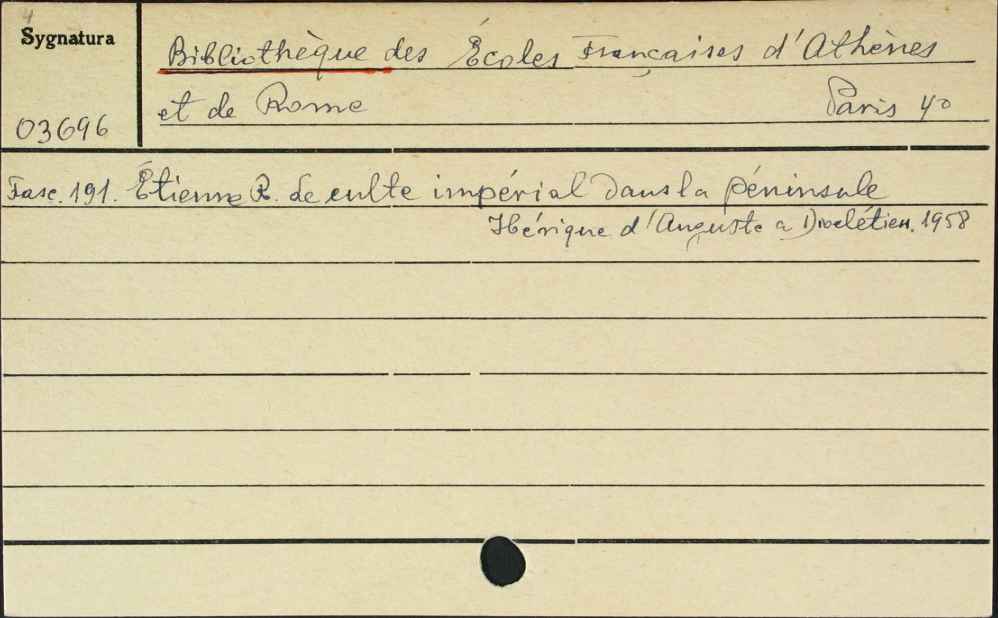 Sygnatura
Bibliothèque des Écoles Françaises d'Athènes
et de Rome Paris 4o
03696
Fasc. 191. Étienne R. Le culte impérial dans la péninsule
Ibérique d'Auguste a Dioclétien. 1958